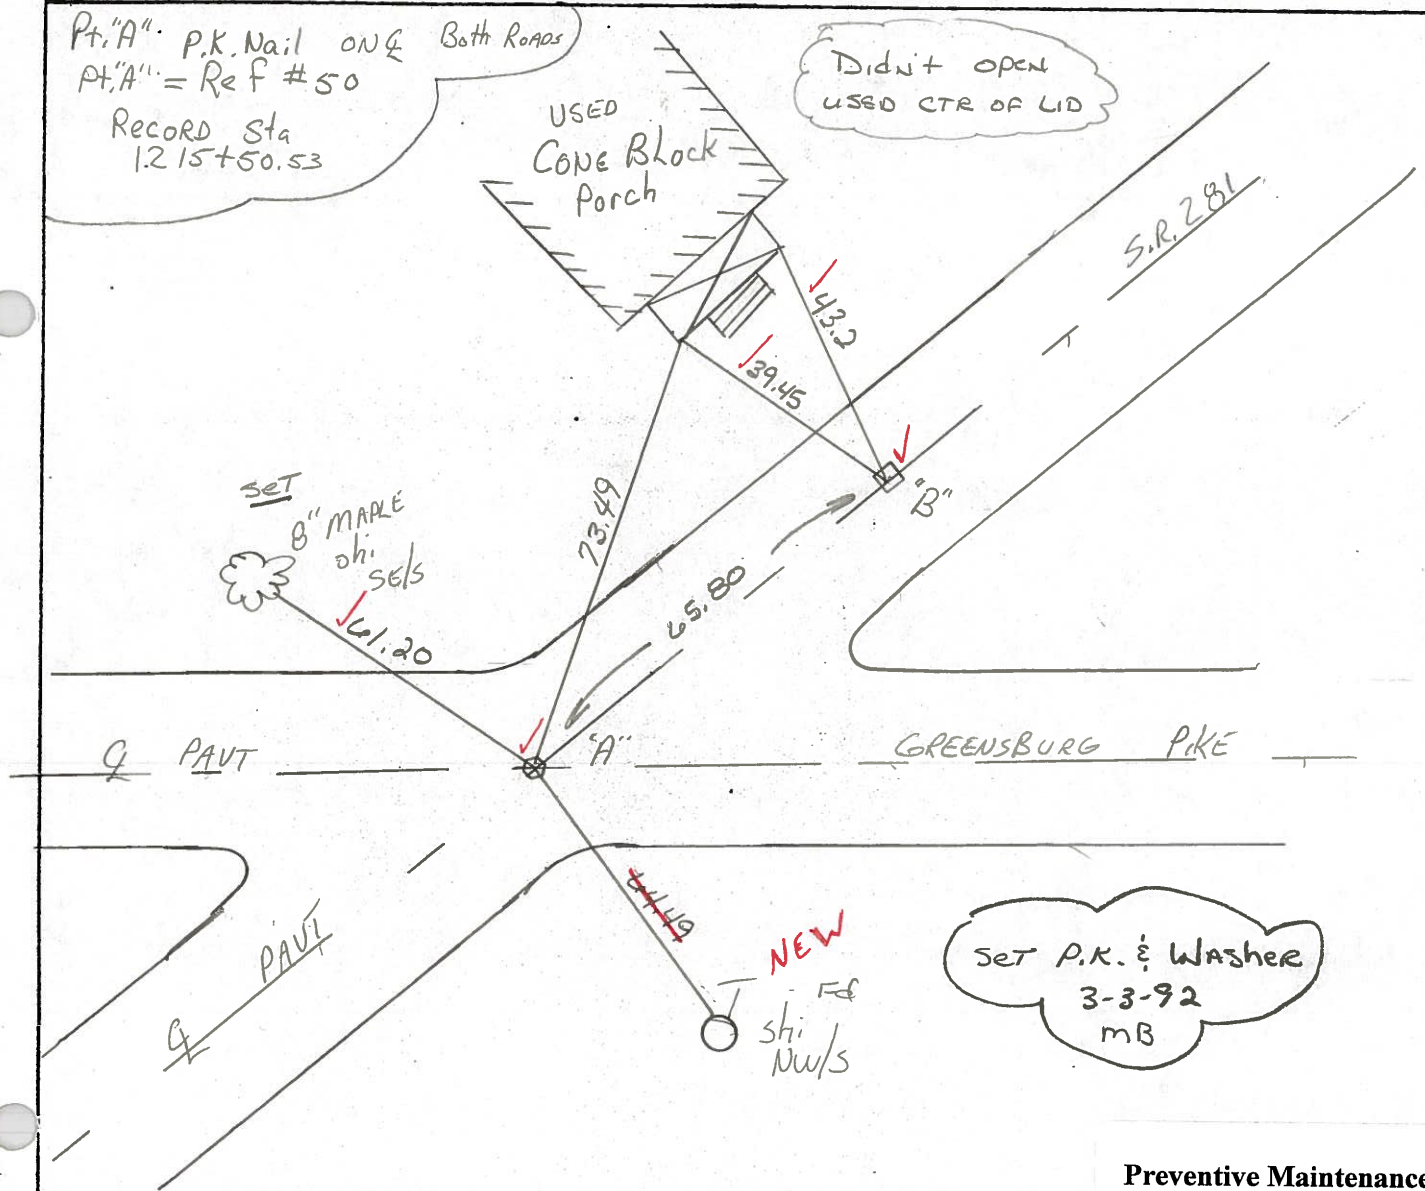 Pt."A" P.K. Nail ON ℄ Both Roads
Pt."A" = Ref #50
Record Sta
1215+50.53
USED
Conc Block
Porch
Didn't open
used ctr of lid
S.R. 281
43.2
39.45
"B"
73.49
set
8" maple
ohi
SE/S
61.20
65.80
"A"
℄ PAVT
GREENSBURG PIKE
44.49
NEW
Fd
shi
NW/S
℄ PAVT
Set P.K. & Washer
3-3-92
mB
Preventive Maintenance